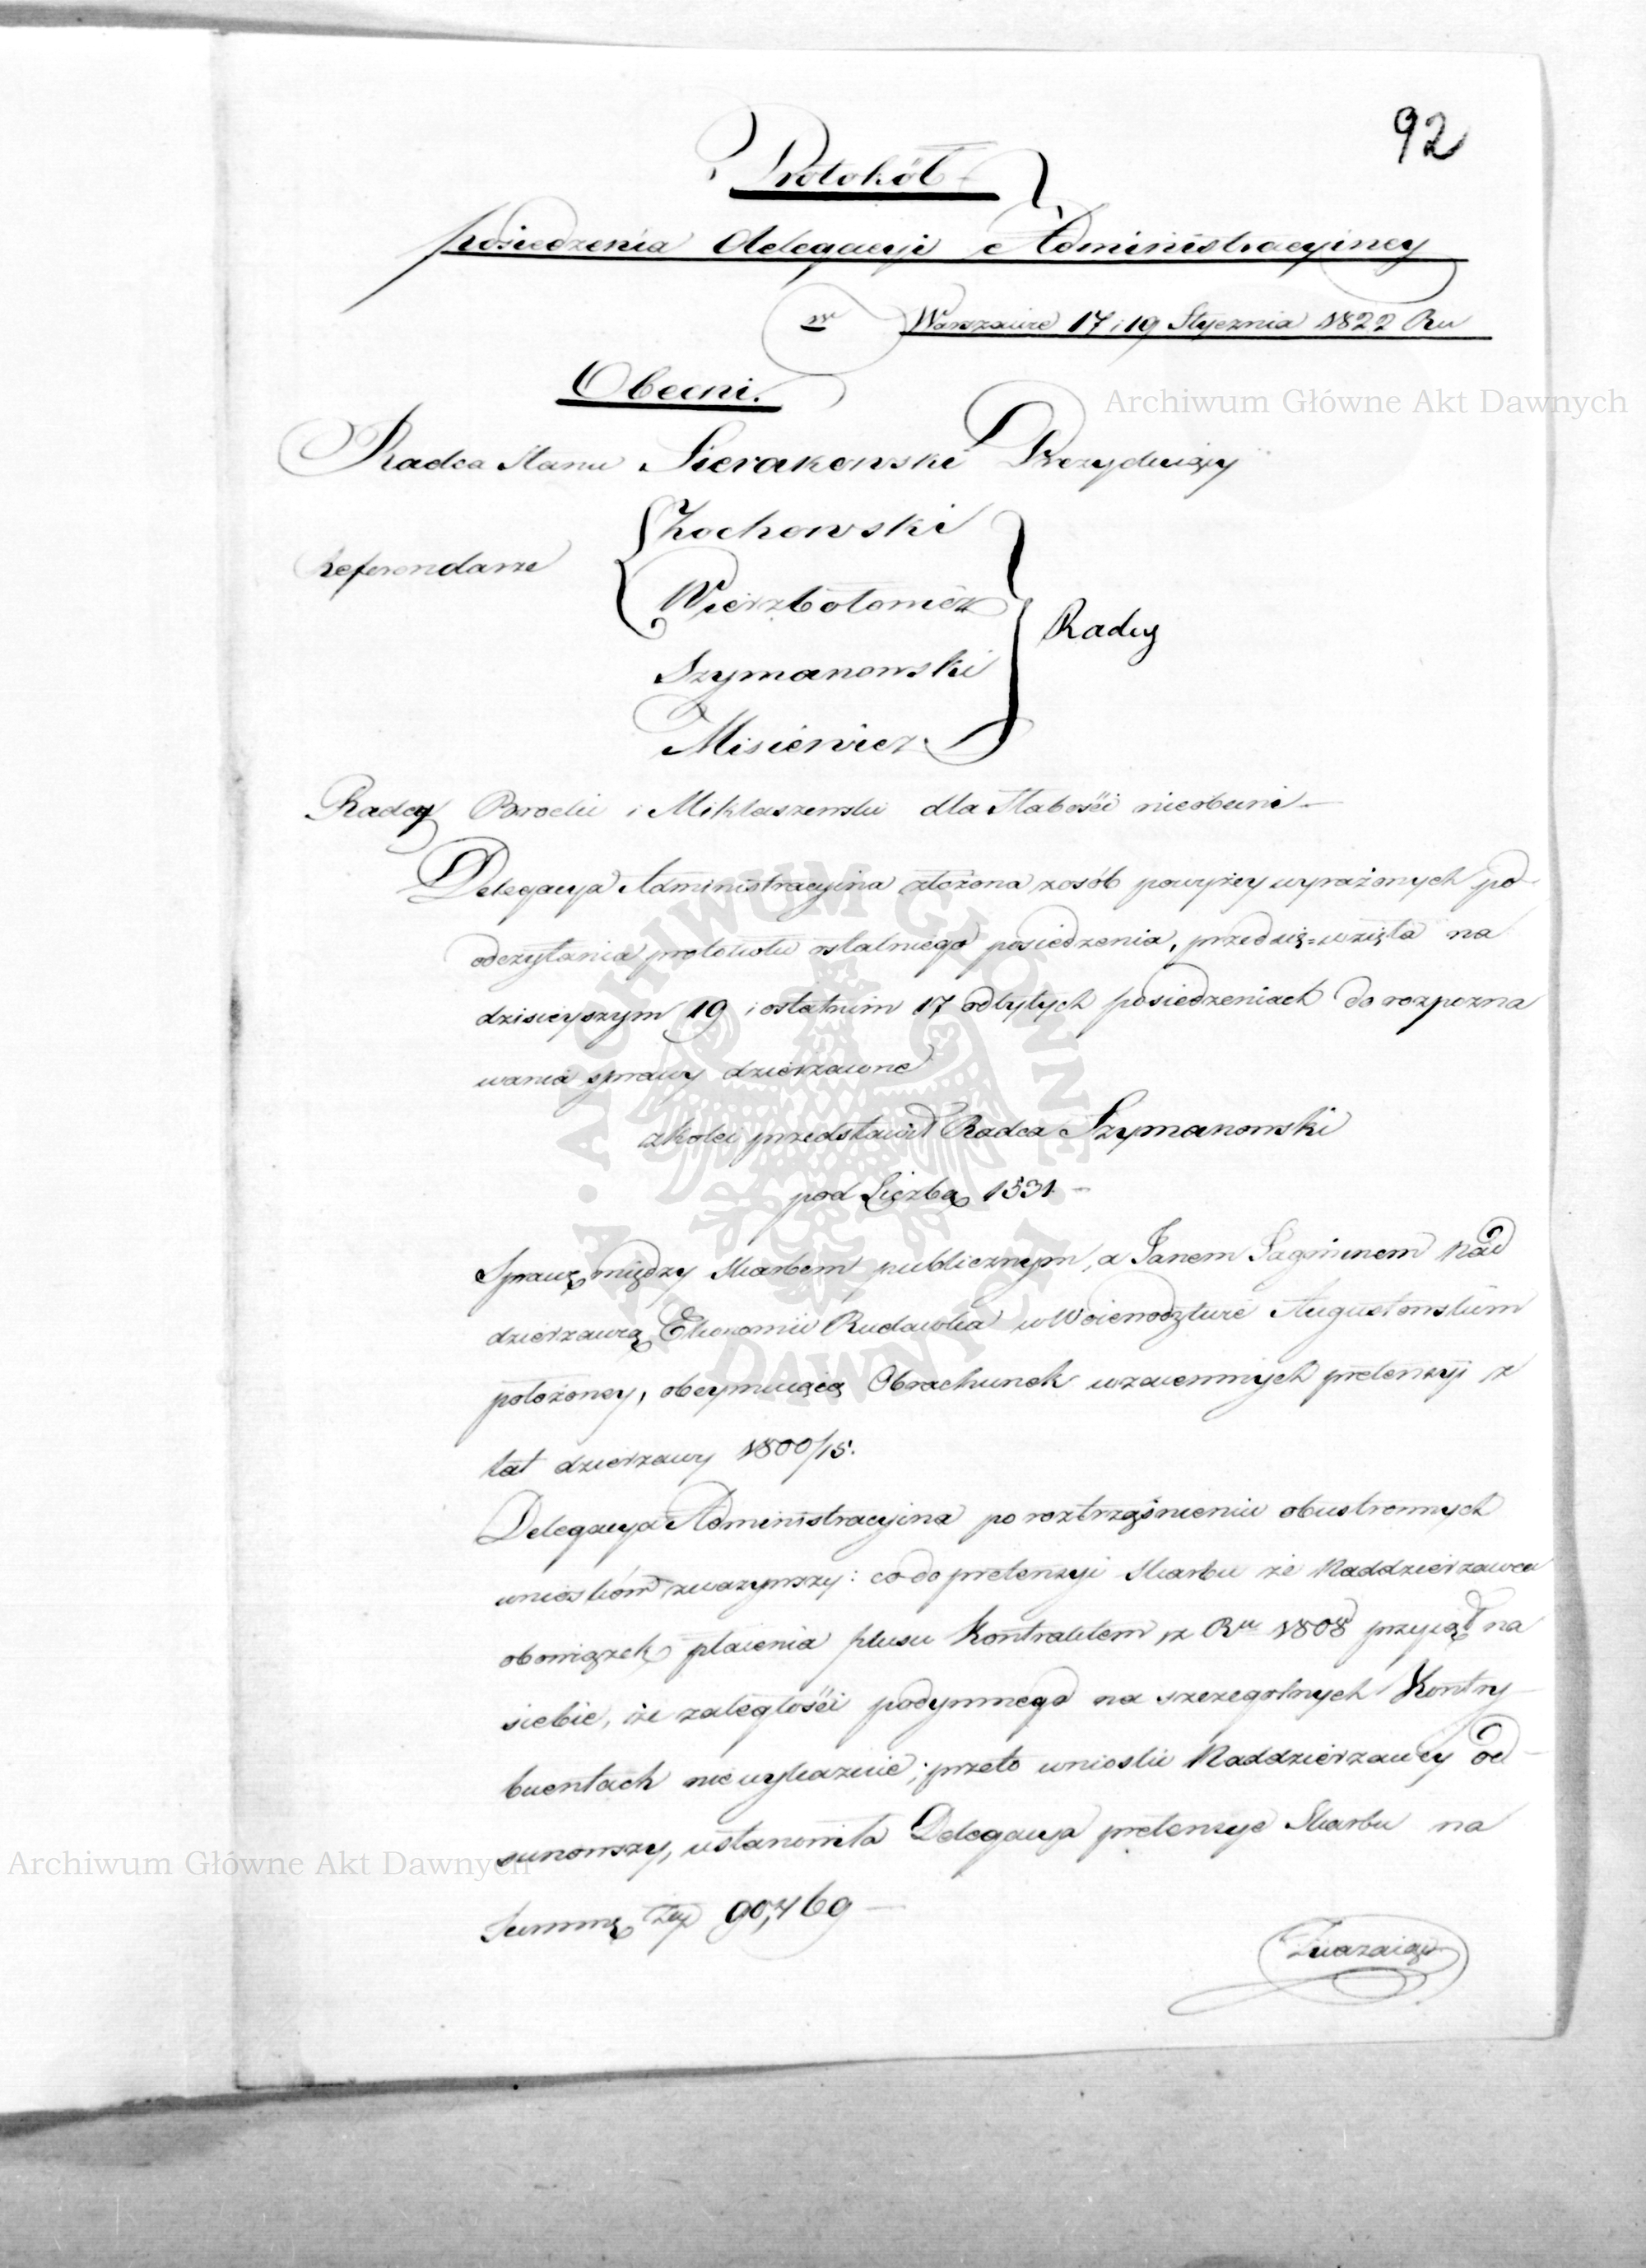 92
Protokół
posiedzenia delegacyi Administracyiney
w Warszawie 17 i 19 Stycznia 1822 Ru
Obecni.
Archiwum Główne Akt Dawnych
Radca Stanu Sierakowski Prezyduiący
Żochowski
Referendarze
Wierzbołowicz
Radcy
Szymanowski
Misiewicz
Radcy i Miklaszewski dla słabości nieobecni
Delegacya Administracyina złożona z osób powyżey wyrażonych po
odczytaniu protokołu ostatniego posiedzenia, przedsię=wzięła na
dzisieyszym 19 i ostatnim 17 odbytych posiedzeniach do rozpozna
wania sprawy dzierzawne
z kolei przedstawił Radca Szymanowski
pod Liczbą 1531
Sprawę między Skarbem publicznym, a Janem Nad
dzierzawcą Ekonomii Rudawka w Woiewodztwie Augustowskim
położoney, obeymuiącą Obrachunek wzaiemnych pretensyi z
lat dzierzawy 1800/15.
Delegacya Administracyina po roztrząśnieniu obustronnych
wniosków zwazywszy: co do pretensyi Skarbu że Naddzierzawca
obowiązek płacenia plusu Kontraktem z Ru 1808 przyiął na
siebie, iże zaległości podymnego na szczegolnych Kontry
buentach nie wykazuie; przeto wnioski Naddzierzawcy od
sunowszy, ustanowiła Delegacya pretensye Skarbu na
Summę Złp 90,469
Zwazaiąc
Archiwum Główne Akt Dawnych
ARCHIWUM GŁÓWNE AKT DAWNYCH